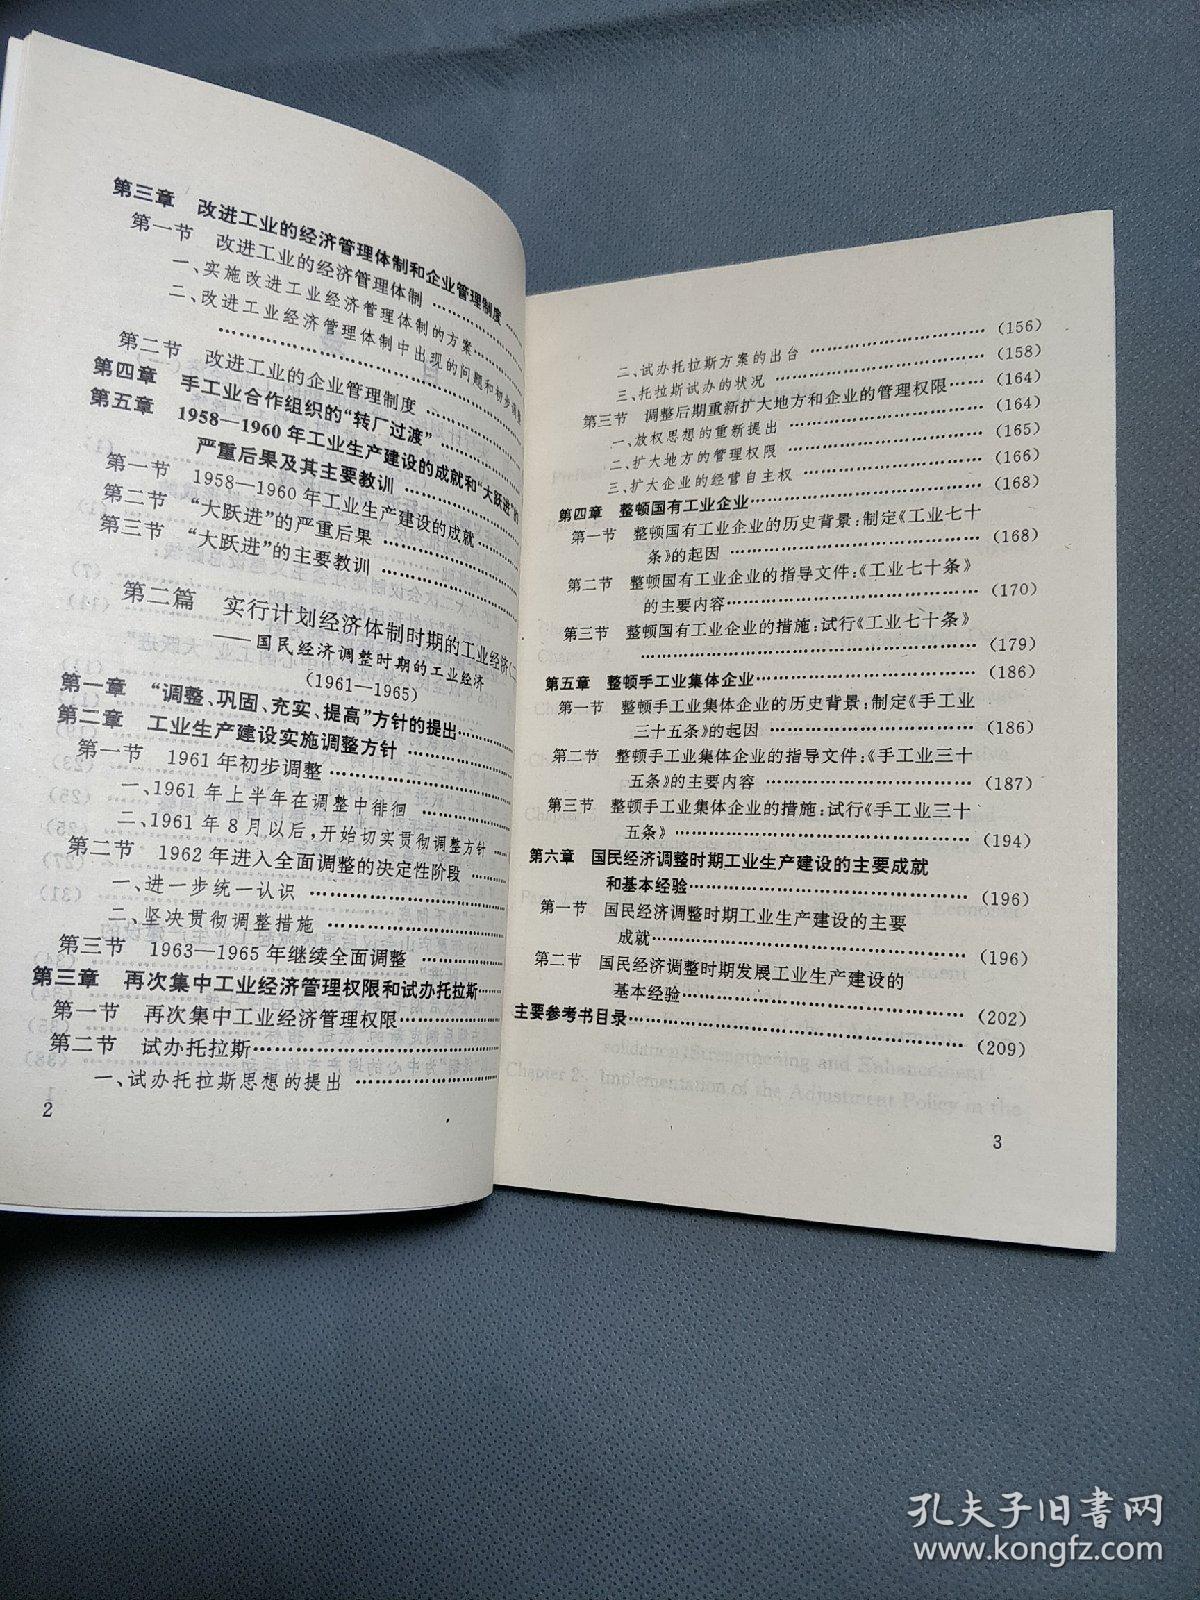 第三章 改进工业的经济管理体制和企业管理制度……
第一节 改进工业的经济管理体制……
一、实施改进工业经济管理体制的方案……
二、改进工业经济管理体制中出现的问题和初步调整
……
第二节 改进工业的企业管理制度……
第四章 手工业合作组织的“转厂过渡”……
第五章 1958—1960年工业生产建设的成就和“大跃进”的
严重后果及其主要教训……
第一节 1958—1960年工业生产建设的成就……
第二节 “大跃进”的严重后果……
第三节 “大跃进”的主要教训……
第二篇 实行计划经济体制时期的工业经济(二
——国民经济调整时期的工业经济
(1961—1965)
第一章 “调整、巩固、充实、提高”方针的提出……
第二章 工业生产建设实施调整方针……
第一节 1961年初步调整……
一、1961年上半年在调整中徘徊……
二、1961年8月以后,开始切实贯彻调整方针……
第二节 1962年进入全面调整的决定性阶段……
一、进一步统一认识……
二、坚决贯彻调整措施……
第三节 1963—1965年继续全面调整……
第三章 再次集中工业经济管理权限和试办托拉斯……
第一节 再次集中工业经济管理权限……
第二节 试办托拉斯……
一、试办托拉斯思想的提出……
2
二、试办托拉斯方案的出台……(156)
三、托拉斯试办的状况……(158)
第三节 调整后期重新扩大地方和企业的管理权限……(164)
一、放权思想的重新提出……(164)
二、扩大地方的管理权限……(165)
三、扩大企业的经营自主权……(166)
第四章 整顿国有工业企业……(168)
第一节 整顿国有工业企业的历史背景:制定《工业七十
条》的起因……(168)
第二节 整顿国有工业企业的指导文件:《工业七十条》
的主要内容……(170)
第三节 整顿国有工业企业的措施:试行《工业七十条》
……(179)
第五章 整顿手工业集体企业……(186)
第一节 整顿手工业集体企业的历史背景:制定《手工业
三十五条》的起因……(186)
第二节 整顿手工业集体企业的指导文件:《手工业三十
五条》的主要内容……(187)
第三节 整顿手工业集体企业的措施:试行《手工业三十
五条》……(194)
第六章 国民经济调整时期工业生产建设的主要成就
和基本经验……(196)
第一节 国民经济调整时期工业生产建设的主要
成就……(196)
第二节 国民经济调整时期发展工业生产建设的
基本经验……(202)
主要参考书目录……(209)
solidation, Strengthening and Enhancement
Chapter 2 Implementation of the Adjustment Policy in the
3
孔夫子旧书网
www.kongfz.com